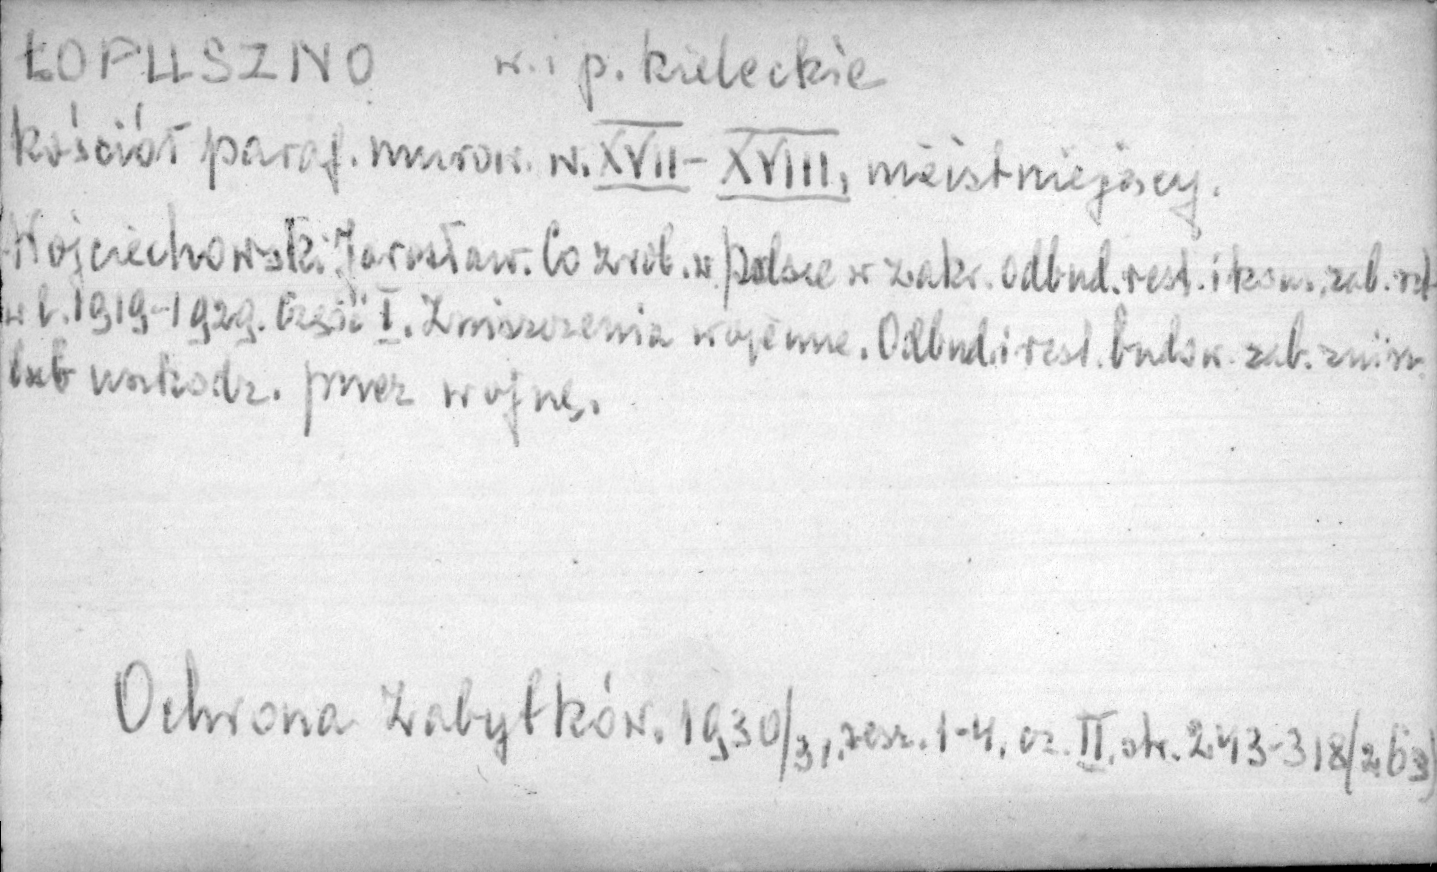 ŁOPUSZNO w. i p. kieleckie
kościół paraf. murow. w. XVII-XVIII, nieistniejący.
Wojciechowski Jarosław. Co zrob. w Polsce w zakr. odbud. rest. i kons. zab. szt.
w l. 1919-1929. Część I. Zniszczenia wojenne. Odbud. i rest. budow. zab. zniszcz.
lub uszkodz. przez wojnę.
Ochrona Zabytków. 1930/31, zesz. 1-4, cz. II, str. 243-318/263)